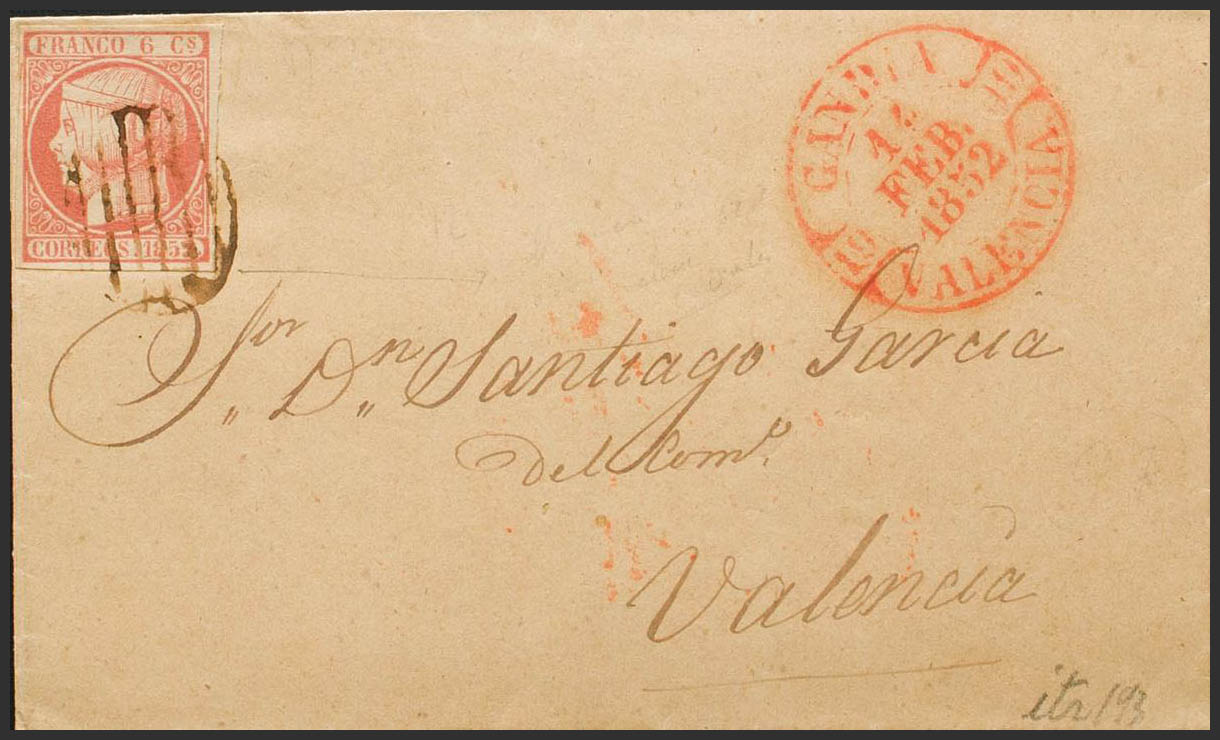 FRANCO 6 Cs
CORREOS. 1852.
GANDIA
FEB.
1852
10
VALENCIA
Sor Dn Santiago Garcia
del Como.
Valencia